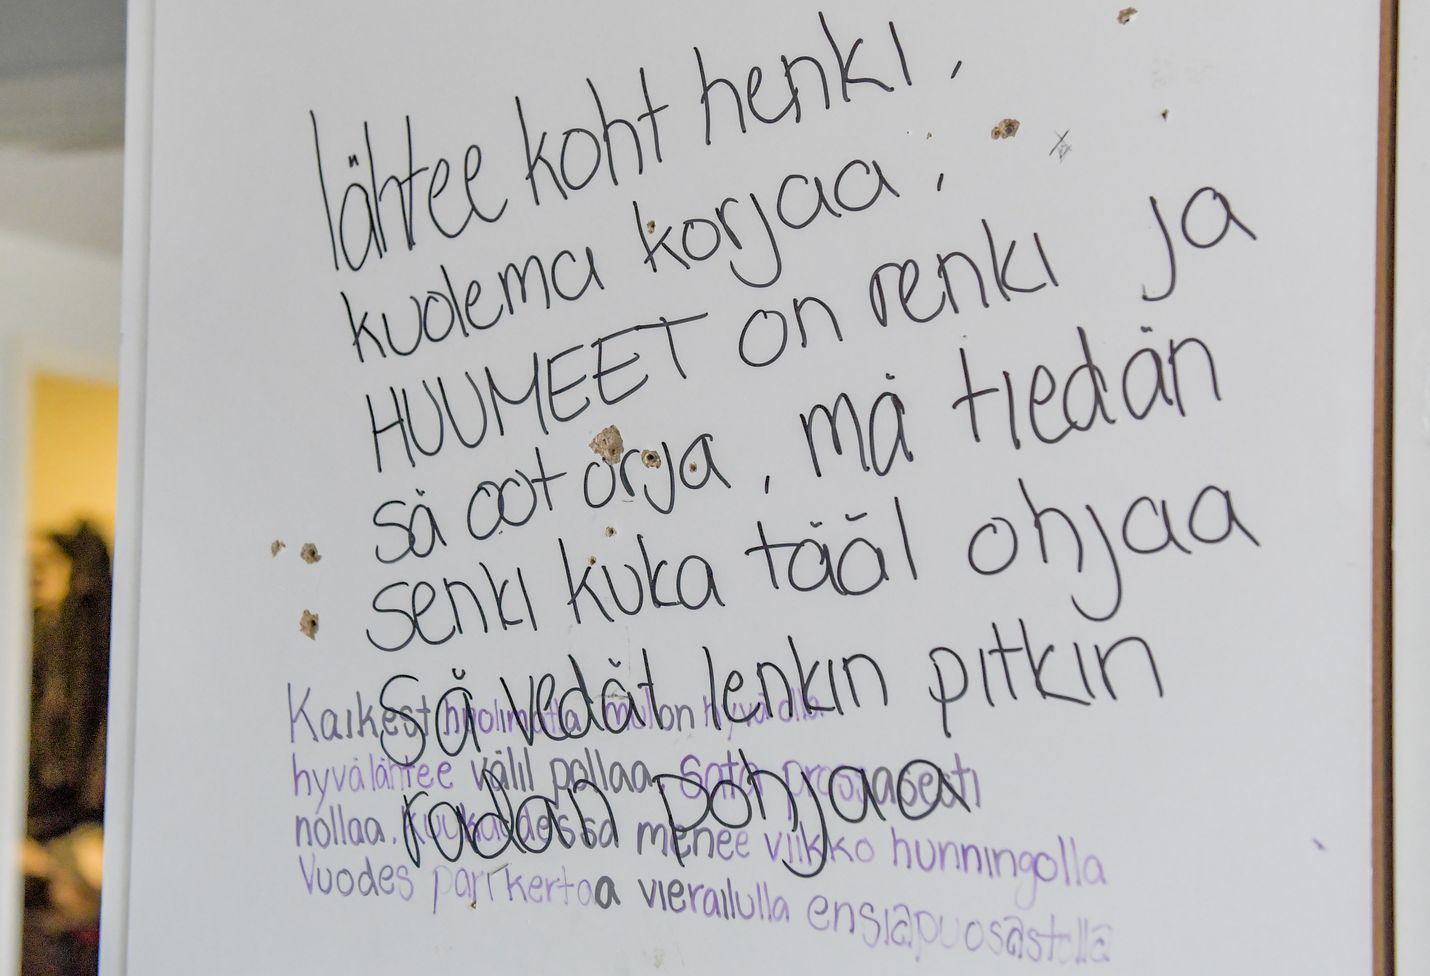 lähtee koht henki,
kuolema korjaa,
HUUMEET on renki ja
sä oot orja, mä tiedän
senki kuka tääl ohjaa
sä vedät lenkin pitkin
radan pohjaa
Kaikest huolimatta mulon hyvä olla
hyvä lähtee välil pollaa, sata prossasesti
nollaa. Kuukaudessa menee viikko hunningolla
Vuodes pari kertaa vierailulla ensiapuosastolla